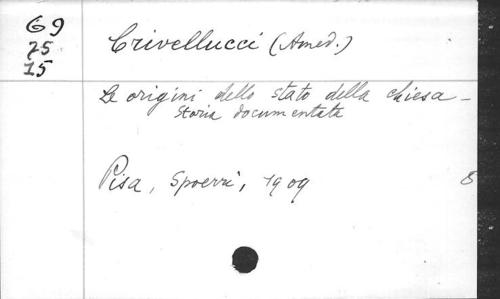 69
75
15
Crivellucci (Amed.)
Le origini dello stato della chiesa -
storia documentata
Pisa, Spoerri, 1909
8